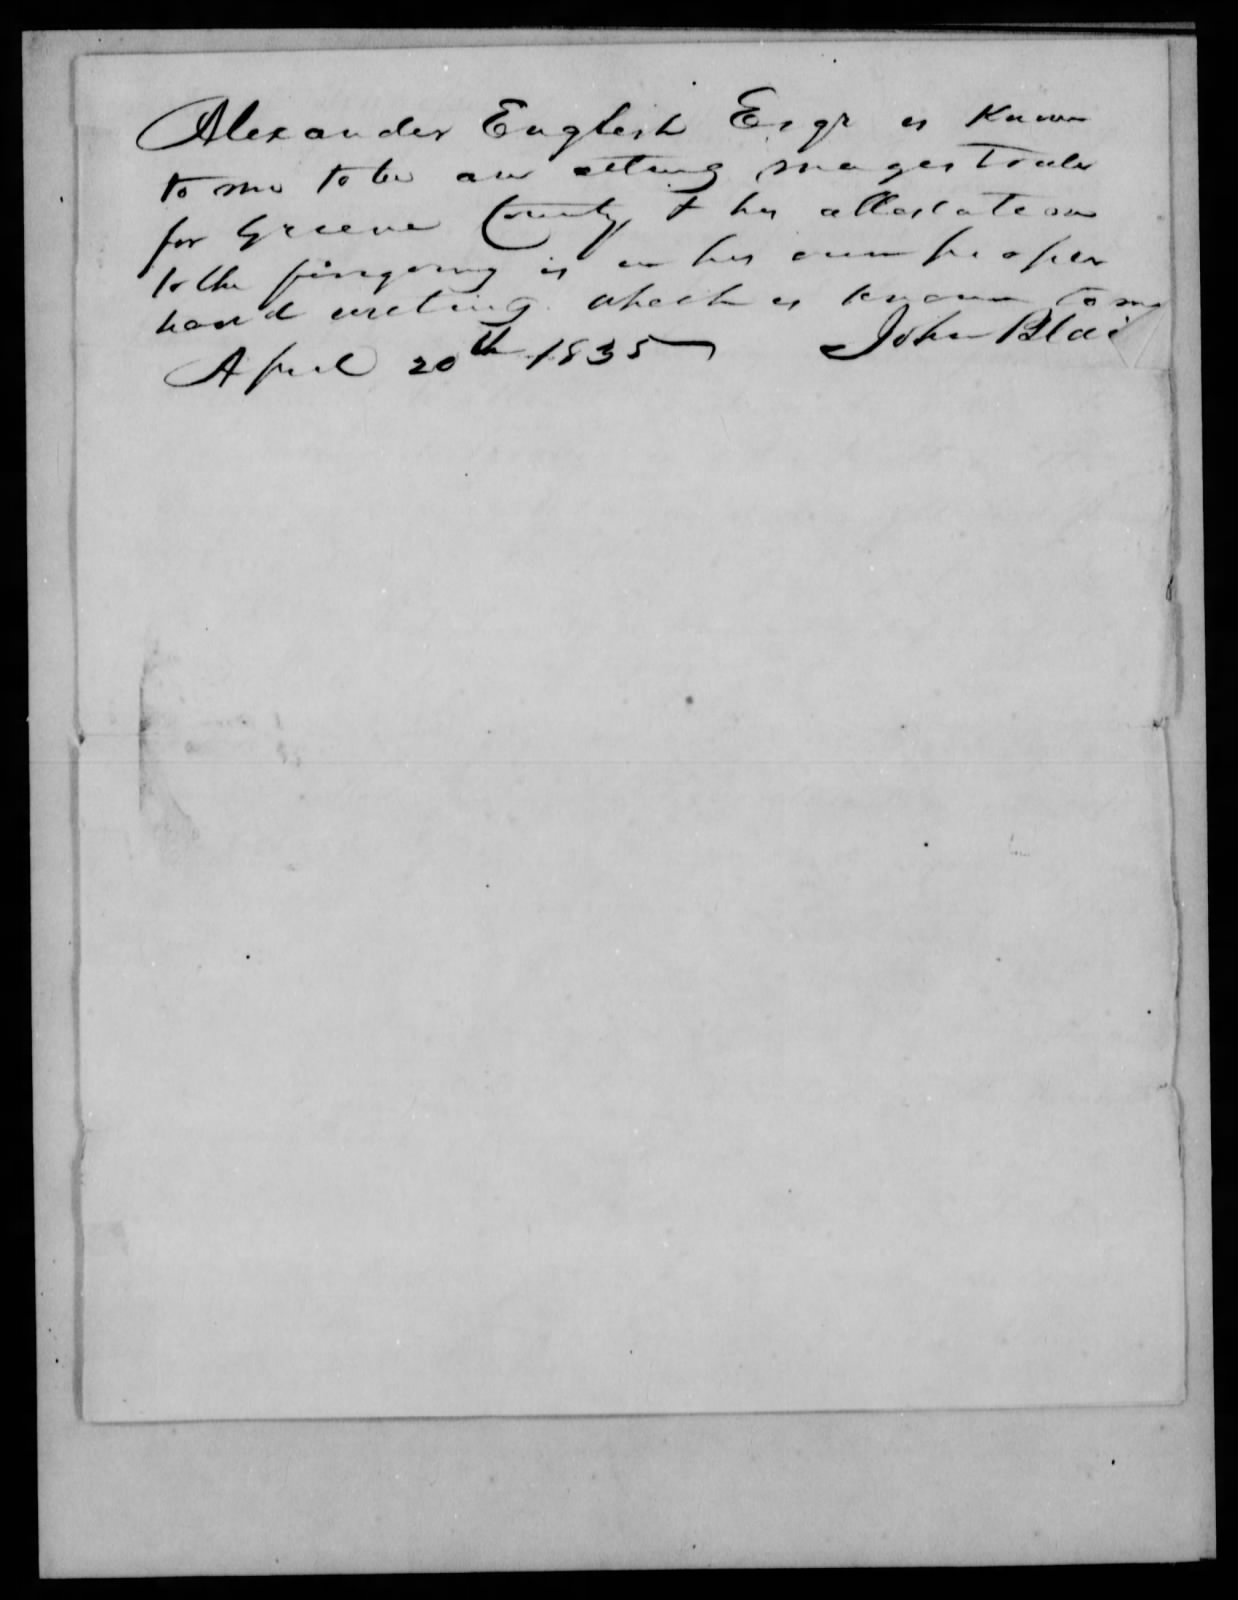 Alexander English Esqr is known
to me to be an acting magestrate
for Greene County & his attestation
to the foregoing is in his own proper
hand writing which is known to me
April 20th 1835 John Blai